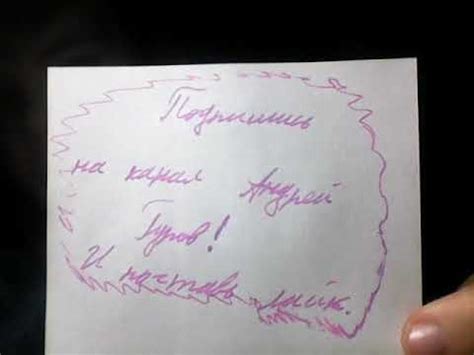 Подпишись
на канал Андрей
Гуров!
И поставь лайк.